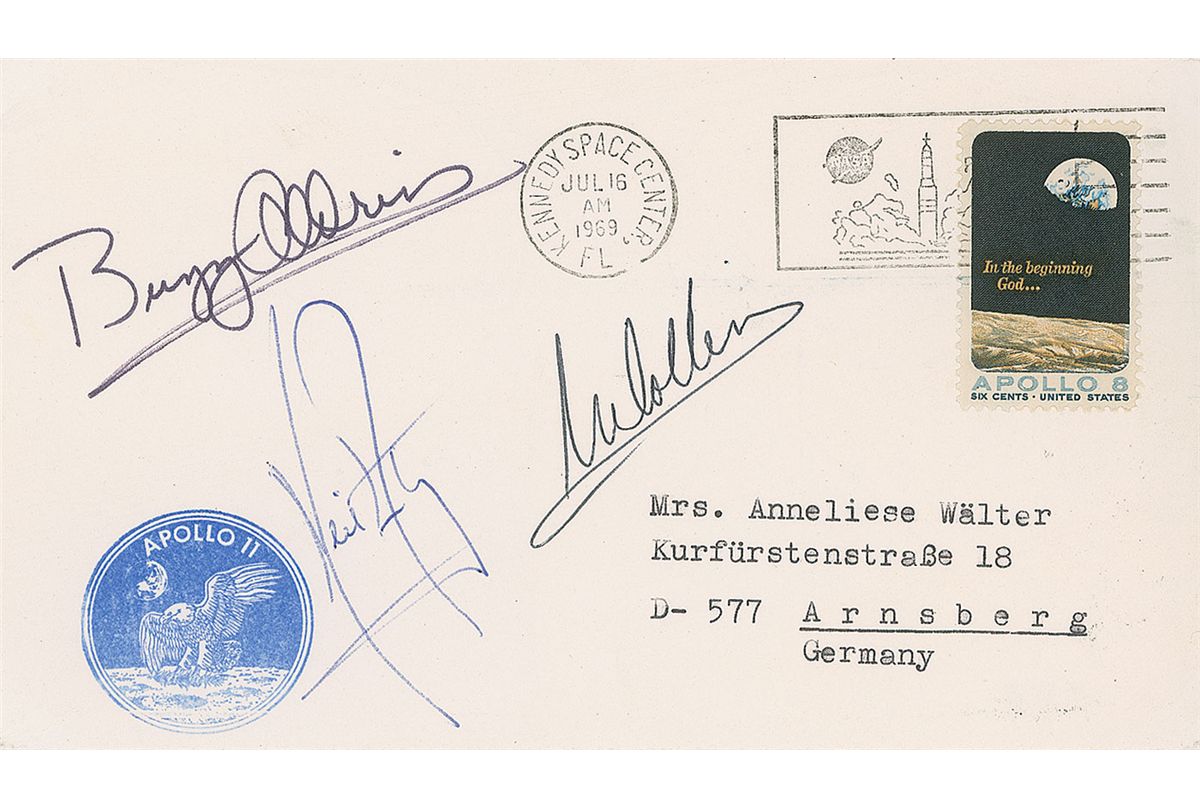 KENNEDY SPACE CENTER,
JUL 16
AM
1969
FL
NASA
In the beginning
God...
APOLLO 8
SIX CENTS · UNITED STATES
Buzz Aldrin
M Collins
Neil A
APOLLO 11
Mrs. Anneliese Wälter
Kurfürstenstraße 18
D- 577 Arnsberg
Germany